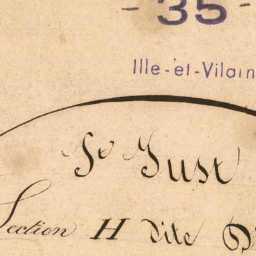 - 35 -
Ille-et-Vilain
St Just
Section H dite D